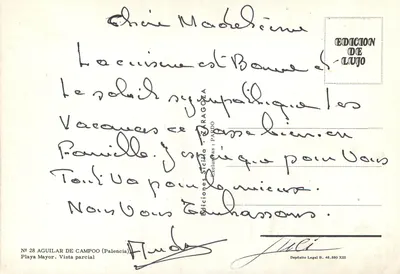 Chère Madeleine
EDICION
DE
LUJO
La cuisine est Bonne et
Le soleil sympathique Les
Vacances se passe bien en
Famille. J'espère que pour Vous
Tout Va pour le mieux.
Nous Vous Embrassons.
Ediciones Sicilia - ZARAGOZA
Nº 28 AGUILAR DE CAMPOO (Palencia)
Playa Mayor. Vista parcial
Julia
Depósito Legal B.